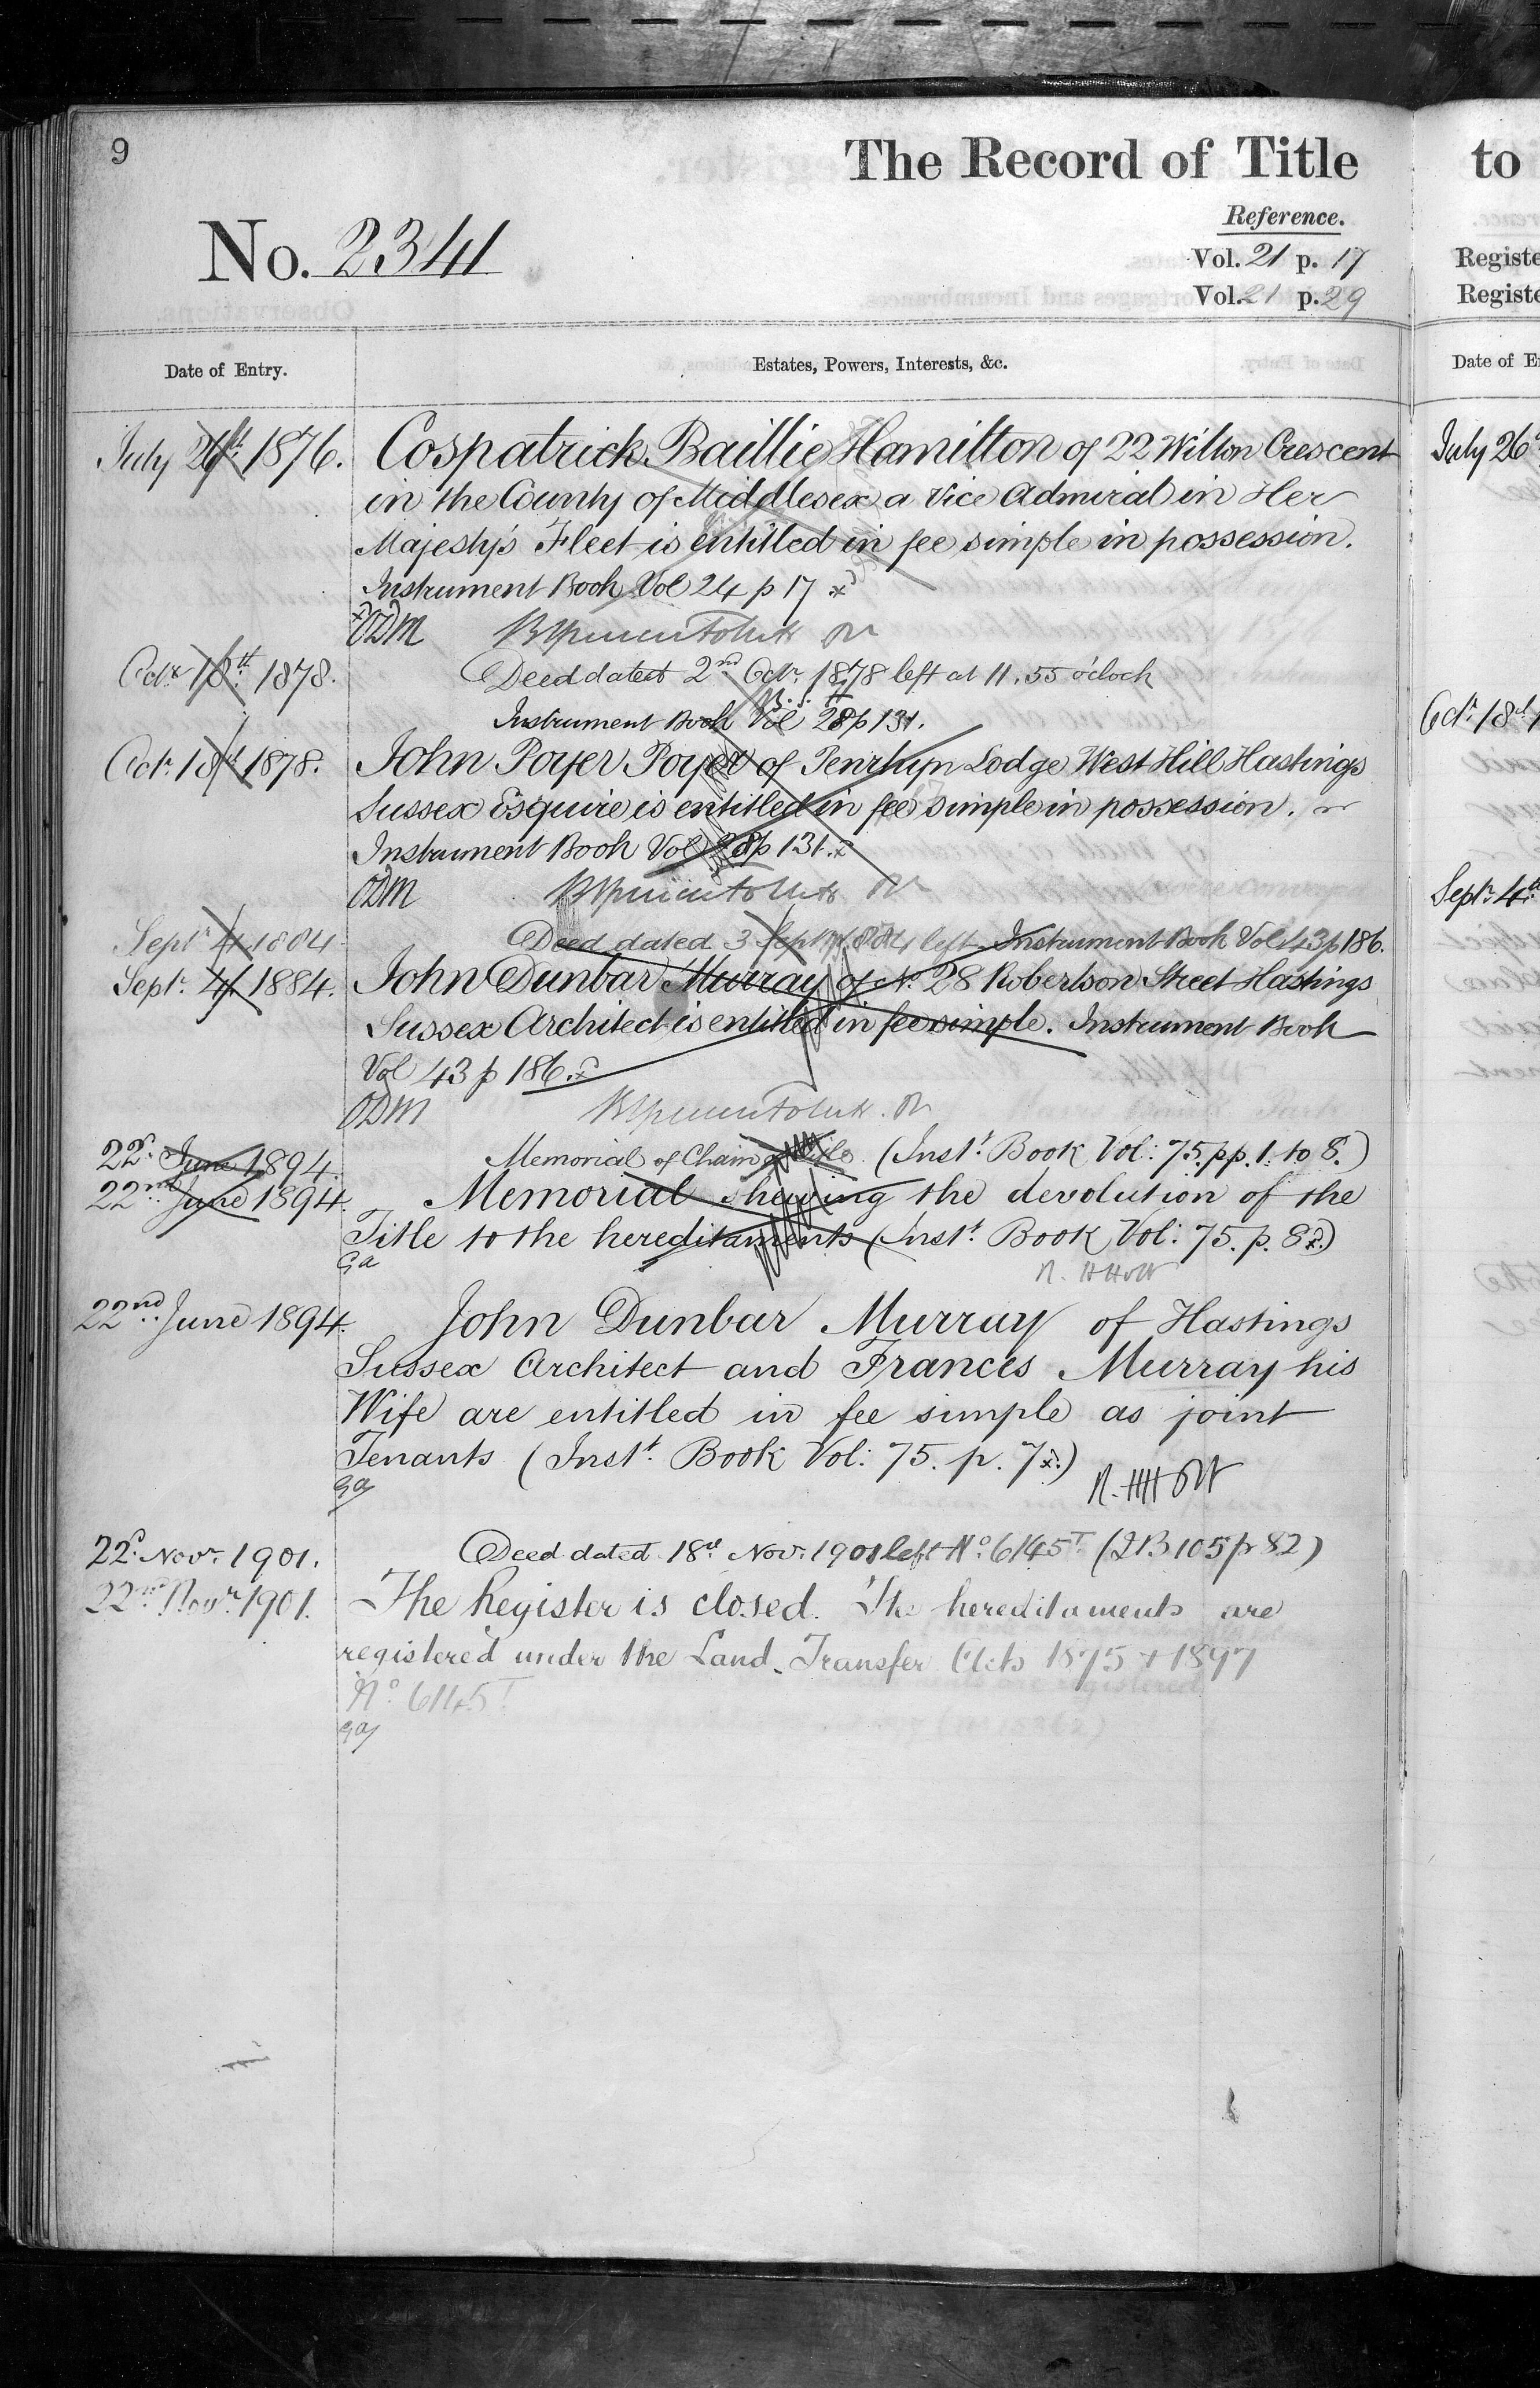 9
The Record of Title
to
Reference.
No. 2341
Vol. 21 p. 17
Registe
Vol. 21 p. 29
Registe
Date of Entry.
Estates, Powers, Interests, &c.
Date of E
July 26th 1876. Cospatrick Baillie Hamilton of 22 Wilton Crescent
July 26
in the County of Middlesex a Vice Admiral in Her
Majesty's Fleet is entitled in fee simple in possession.
Instrument Book Vol 24 p 17 x
ODM
Octr 18th 1878. Deed dated 2nd Octr. 1878 left at 11.55 o'clock
Instrument Book Vol 28 p 131.
Octr 18th 1
Octr. 18th 1878. John Poyer Poyer of Penrhyn Lodge West Hill Hastings
Sussex Esquire is entitled in fee simple in possession.
Instrument Book Vol 28 p 131. x
ODM
Septr 4th
Septr 4 1884 Deed dated 3 Septr 1884 left Instrument Book Vol 43 p 186.
Septr. 4 1884. John Dunbar Murray of No. 28 Robertson Street Hastings
Sussex Architect is entitled in fee simple. Instrument Book
Vol 43 p 186. x
ODM
22d. June 1894. Memorial of Chain of title. (Instt. Book Vol: 75. pp. 1. to 8.)
22nd June 1894. Memorial shewing the devolution of the
Title to the hereditaments (Instt. Book Vol: 75. p. 8 x.)
Ga
R. H Holt
22nd. June 1894. John Dunbar Murray of Hastings
Sussex Architect and Frances Murray his
Wife are entitled in fee simple as joint
Tenants (Instt. Book Vol: 75. p. 7 x.)
Ga
R. H Holt
22d. Novr. 1901. Deed dated 18th. Nov. 1901 left No. 6145T (IB 105 p 82)
22nd Novr. 1901. The Register is closed. The hereditaments are
registered under the Land Transfer Acts 1875 + 1897
No. 6145T
Ga